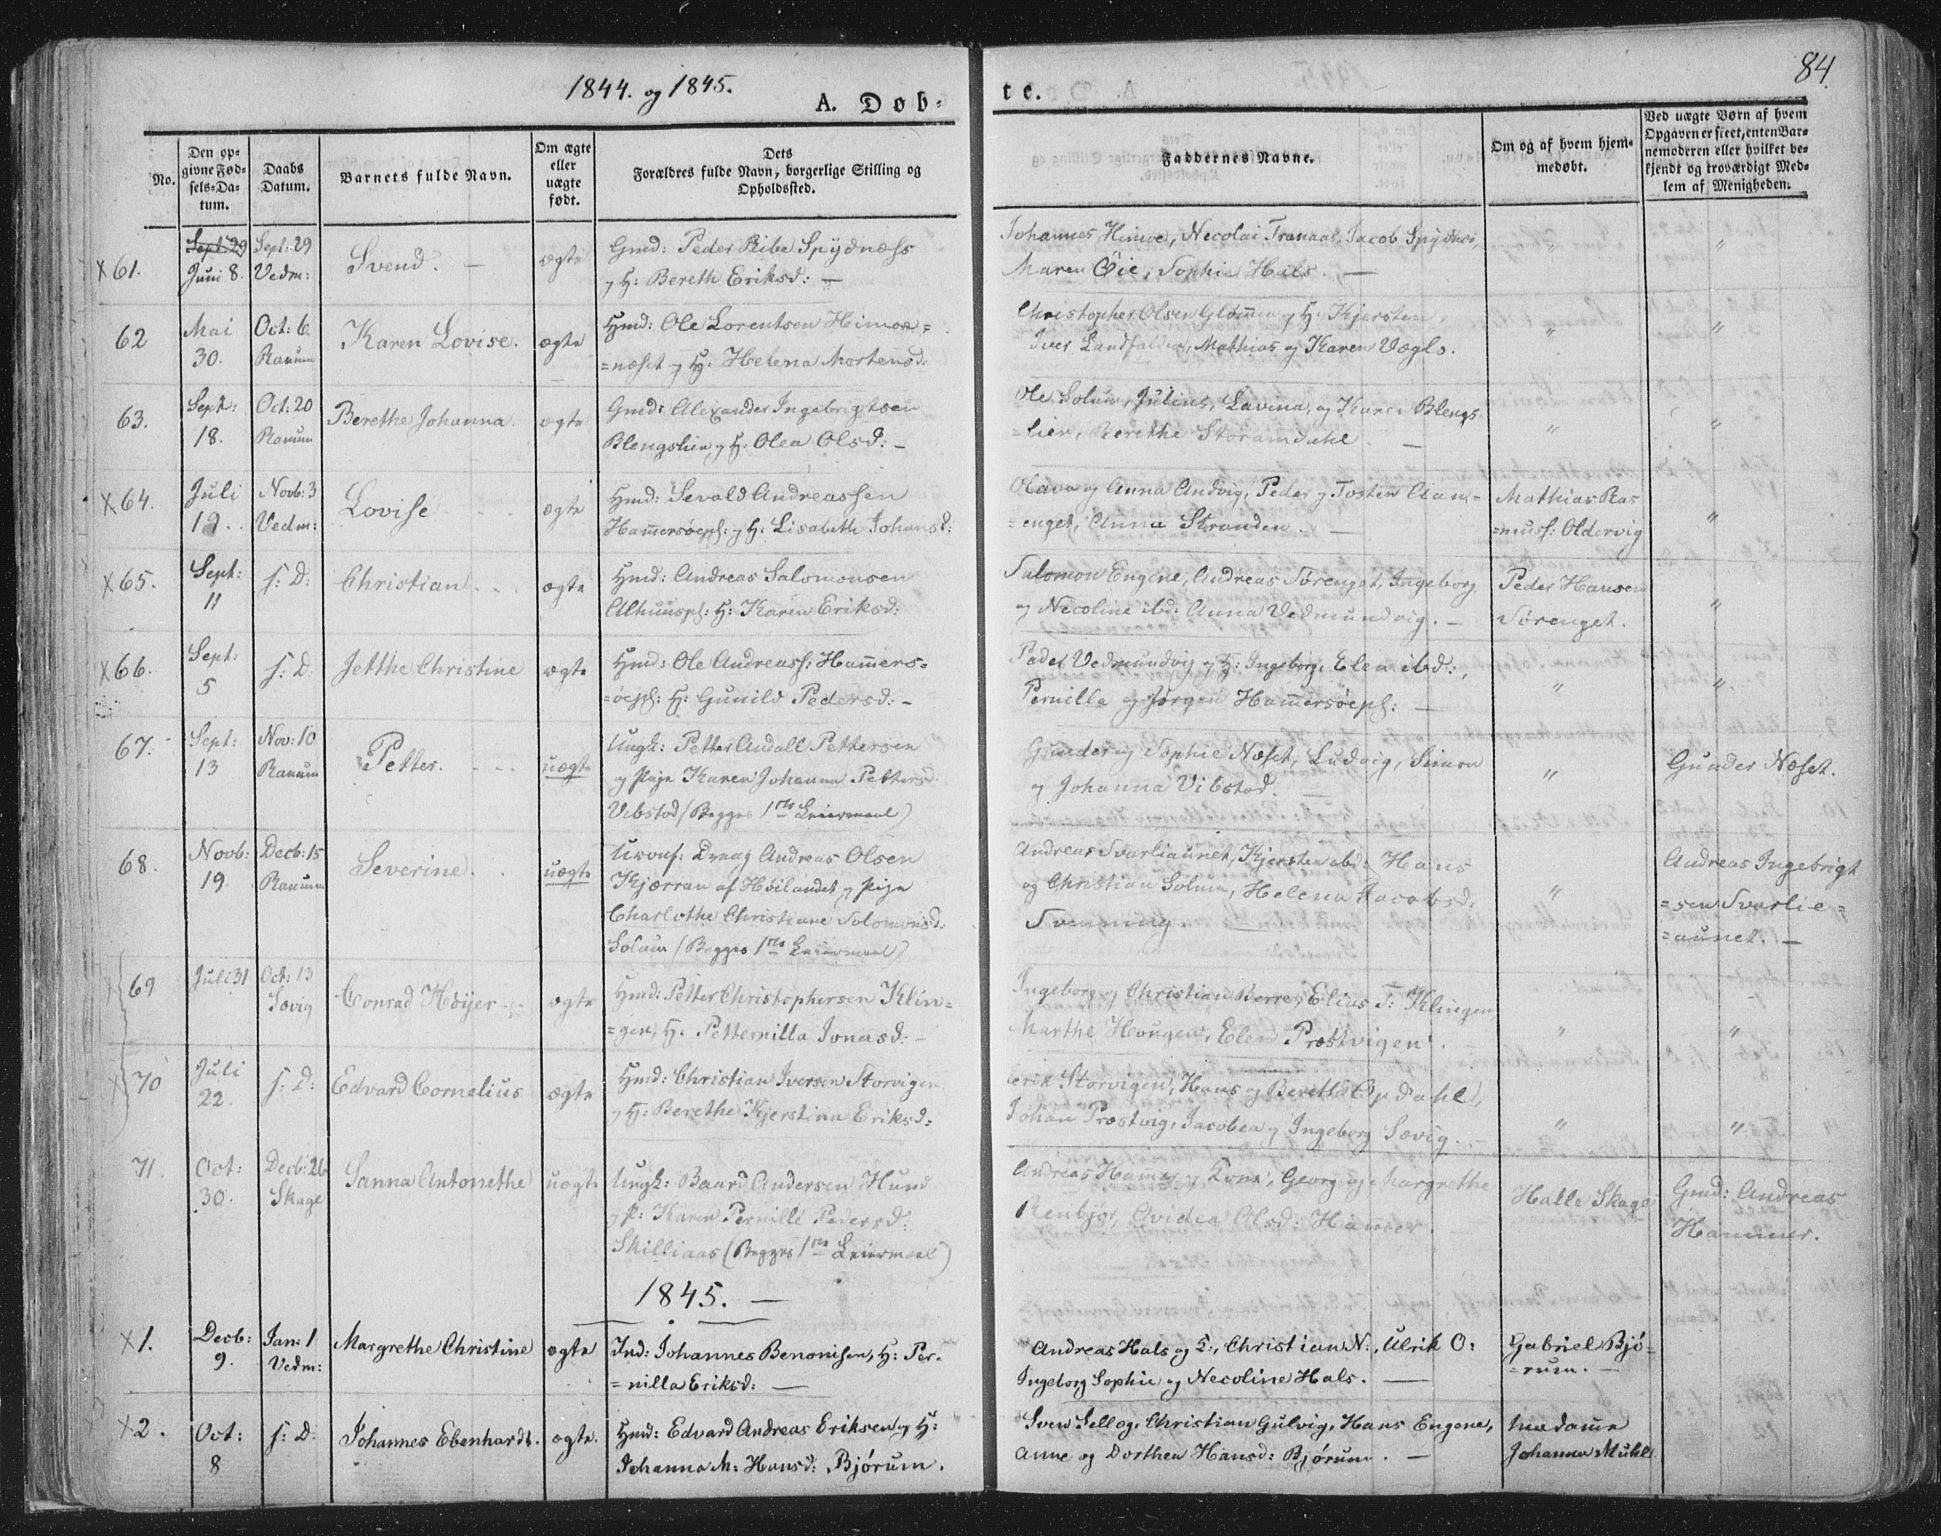 1844. og 1845.
A. Døb-
te.
84.
No.
Den op-
givne Fød-
sels-Da-
tum.
Daabs
Datum.
Barnets fulde Navn.
Om ægte
eller
uægte
født.
Dets
Forældres fulde Navn, borgerlige Stilling og
Opholdssted.
Faddernes Navne.
Om og af hvem hjem-
medøbt.
Ved uægte Børn af hvem
Opgaven er skeet, enten Bar-
nemoderen eller hvilket be-
kjendt og troværdigt Med-
lem af Menigheden.
x 61.
Sept. 29
Juni 8.
Sept. 29
Vedm:
Svend. —
ægte
Gmd: Peder Ribe Spydnæss
og H: Bereth Eriksd: —
Johannes Himoe, Necolai Tranaas, Jacob Spydnæs,
Maren Øie, Sophie Hals. —
"
"
62
Mai
30.
Oct: 6.
Ranum
Karen Lovise.
ægte
Hmd: Ole Lorentsen Himoe=
=næset og H: Helena Mortensd:
Christopher Olsen Glømmen og H: Kjersten,
Iver Landfalden, Mathias og Karen Vægls.
"
"
63.
Sept:
18.
Oct: 20
Ranum
Berethe Johanna.
ægte
Gmd: Alexander Ingebrigtsen
Blengslien og H: Olea Olsd: —
Ole Solum, Julius, Lavina, og Karen Blengs
=lien, Berethe Storamdahl. —
"
"
x 64.
Juli
19.
Novb: 3
Vedm:
Lovise
ægte
Hmd: Sevald Andreassen
Hammersøepl: og H: Lisabeth Johansd:
Olava og Anna Andvig, Peder og Tosten Aam=
=enget, Anna Stranden. —
Mathias Ras
=muss: Oldervig
"
x 65.
Sept:
11
s: D:
Christian
ægte
Hmd: Andreas Salomonsen
Alhuuspl: H: Karen Eriksd:
Salomon Engene, Andreas Sørenget, Ingeborg
og Necoline ibd: Anna Vedmundvig. —
Peder Hansen
Sørenget.
"
x 66.
Sept:
5
s: D:
Jetthe Christine
ægte
Hmd: Ole Andreass: Hammers=
=øepl: H: Gunild Pedersd: —
Peder Vedmundvig og H: Ingeborg, Elen ibd:,
Pernilla og Jørgen Hammersøepl: —
"
"
67.
Sept:
13
Nov: 10
Ranum
Petter.
uægte
Ungk: Petter Andall Pettersen
og Pige Karen Johanna Pettersd.
Vibstad (Begges 1ste Leiermaal)
Gunder og Sophie Næset, Ludvig, Simon
og Johanna Vibstad. —
"
Gunder Næset.
68.
Novb:
19.
Decb: 15
Ranum
Severine.
uægte
Andreas Olsen
Kjærran af Høilandet og Pige
Charlothe Christiane Solomonsd.
Solum (Begges 1ste Leiermaal)
Andreas Svarliaunet, Kjersten ibd: Hans
og Christian Solum, Helena Jacobsd.
Svenning.
"
Andreas Ingebrigt
=sen Svarlie=
=aunet. —
69
Juli 31
Oct: 13
Sævig
Conrad Høyer
ægte
Hmd: Petter Christophersen Klin=
=gen, H: Petternilla Jonasd: —
Ingeborg og Christian Berre, Elius T: Klingen
Marthe Hougen, Elen Præstvigen.
"
"
x 70
Juli
22.
s: D:
Edvard Cornelius
ægte
Hmd: Christian Iversen Storvigen
og H: Berethe Kjerstina Eriksd:
Erik Storvigen, Hans og Beretta Opdahl,
Johan Præstvig, Jacobea og Ingeborg Sævig. —
"
"
71.
Oct:
30.
Decb: 26
Skage
Sanna Antonethe
uægte
Ungk: Baard Andersen Hund
og P: Karen Pernille Pedersd:
Skilliaas (Begges 1ste Leiermaal)
Andreas Hamer og Kone, Georg og Margrethe
Renbjør, Ovidea Olsd: Hamer.
Halle Skage
Gmd: Andreas
Hammer.
1845. —
x 1.
Decb:
9.
Jan: 1
Vedm:
Margrethe Christine
ægte
Ind: Johannes Benonisen, H: Per=
=nilla Eriksd: —
Andreas Hals og K:, Christian N:, Ulrik O:
Ingeborg Sophie og Necoline Hals. —
Gabriel Bjø=
=rum. —
x 2.
Oct:
8
s: D:
Johannes Ebenhardt.
ægte.
Hmd: Edvard Andreas Eriksen og H:
Johanna M: Hansd: Bjørum.
Sven Sellog, Christian Gulvig, Hans Engene,
Anne og Dorthea Hansd: Bjørum. —
Madame
Johanna Muhl